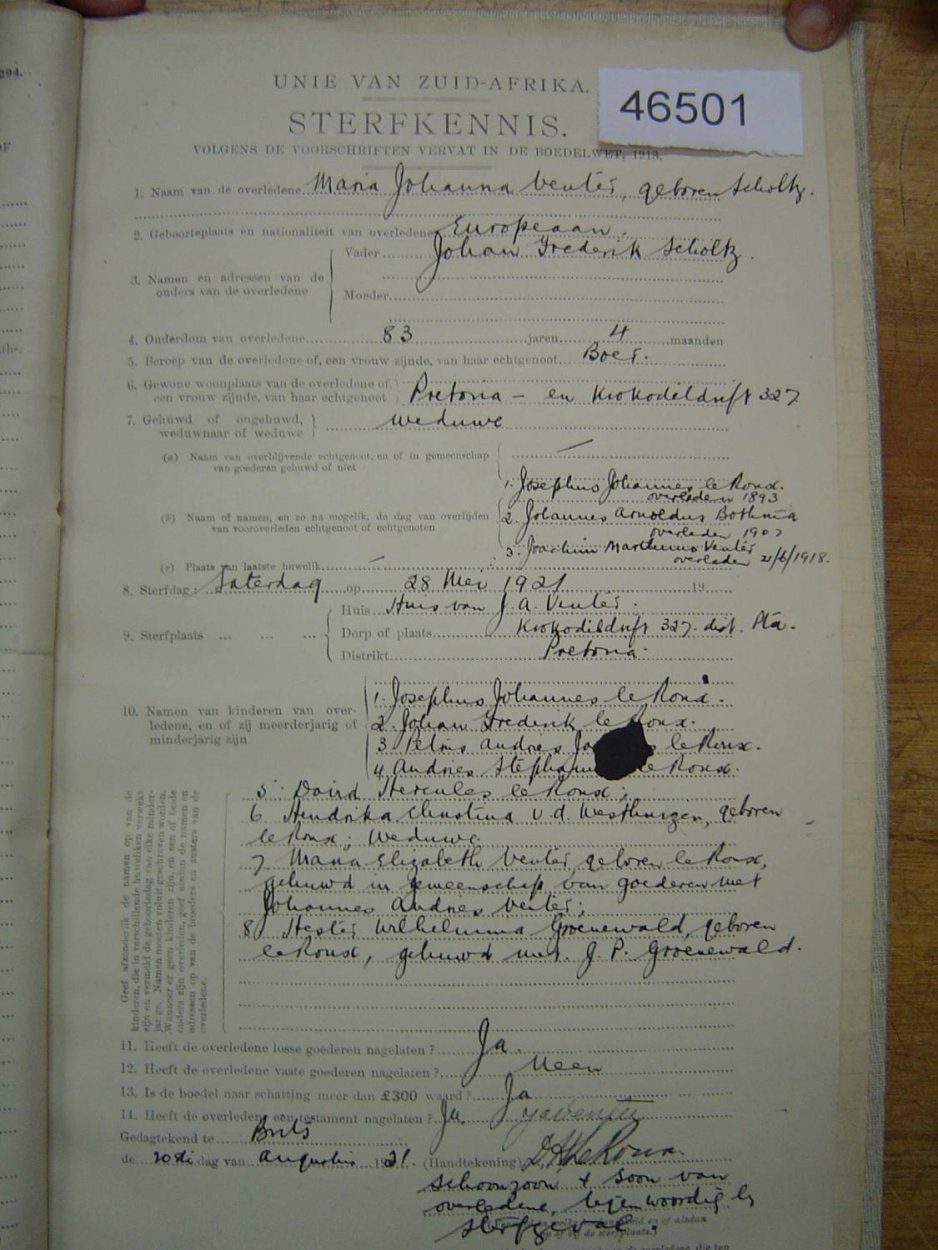 294.
UNIE VAN ZUID-AFRIKA.
46501
STERFKENNIS.
VOLGENS DE VOORSCHRIFTEN VERVAT IN DE BOEDELWET, 1913.
1. Naam van de overledene Maria Johanna Venter, geboren Scholtz.
2. Geboorteplaats en nationaliteit van overledene Europeaan.
3. Namen en adressen van de ouders van de overledene
Vader Johan Frederik Scholtz.
Moeder
4. Ouderdom van overledene 83 jaren 4 maanden
5. Beroep van de overledene of, een vrouw zijnde, van haar echtgenoot Boer.
6. Gewone woonplaats van de overledene of,
een vrouw zijnde, van haar echtgenoot Pretoria – en Krokodildrift 327
7. Gehuwd of ongehuwd,
weduwnaar of weduwe weduwe
(a) Naam van overblijvende echtgenoot, en of in gemeenschap
van goederen gehuwd of niet
(b) Naam of namen, en zo na mogelik, de dag van overlijden
van vooroverleden echtgenoot of echtgenoten
1. Josephus Johannes le Roux.
overleden 1893
2. Johannes Arnoldus Bothma
overleden 190
3. Joachim Marthinus Venter
overleden 21/6/1918.
(c) Plaats van laatste huwelik
8. Sterfdag: Saterdag op 28 Mei 1921 19
9. Sterfplaats ... ... ...
Huis Huis van J. A. Venter.
Dorp of plaats Krokodildrift 327. dist. Pta.
Distrikt Pretoria.
10. Namen van kinderen van over-
ledene, en of zij meerderjarig of
minderjarig zijn
1. Josephus Johannes le Roux.
2. Johan Frederik le Roux.
3 Petrus Andries le Roux.
4 Andries le Roux.
5 David Hercules le Roux;
6 Hendrika Christina v. d. Westhuizen, geboren
le Roux; Weduwe
7 Maria Elizabeth Venter, geboren le Roux,
gehuwd in gemeenschap van goederen met
Johannes Andries Venter;
8 Hester Wilhelmina Groenewald, geboren
le Roux, gehuwd met J. P. Groenewald.
Geef afzonderlik de namen op van de
kinderen, die in verschillende huweliken verwekt
zijn en vermeld de geboortedag van elke minder-
jarige. Namen moeten voluit geschreven worden.
Wanneer er geen kinderen zijn, en een of beide
ouders zijn overleden, geef aisdan de namen en
adressen op van de broeders en zusters van de
overledene.
11. Heeft de overledene losse goederen nagelaten? Ja
12. Heeft de overledene vaste goederen nagelaten? Neen
13. Is de boedel naar schatting meer dan £300 waard? Ja
14. Heeft de overledene een testament nagelaten? Ja. J A Venter
Gedagtekend te Brits
de 20ste dag van Augustus 1921 (Handtekening) D H le Roux
Schoonzoon + Soon van
overledene, tegenwoordig by
sterfgeval.